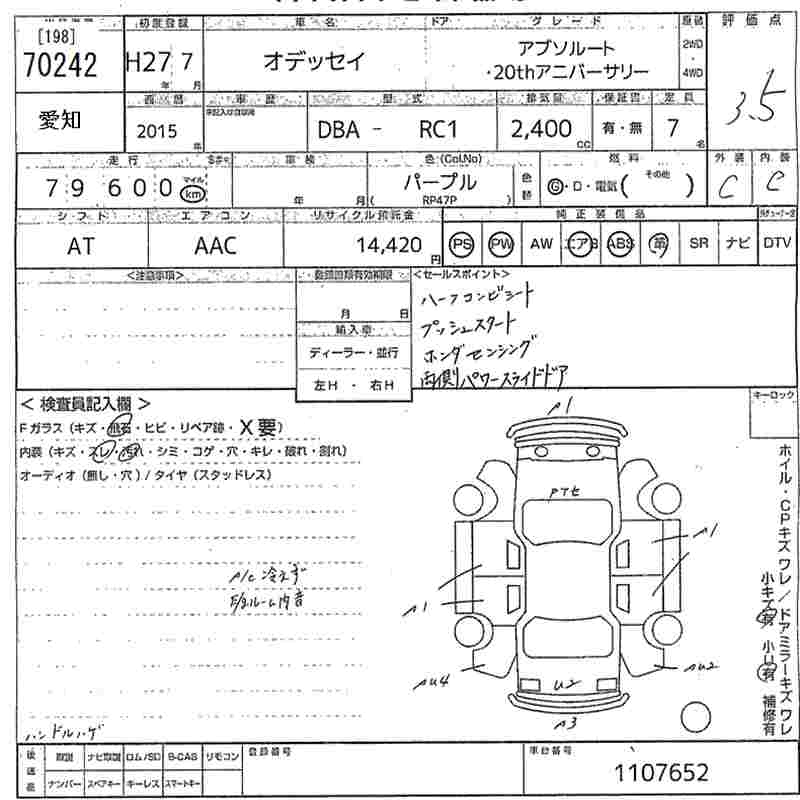 初度登録 車名 ドア グレード 評価点
[198]
70242 H27 7 オデッセイ アブソルート 2WD
年 月 ・20thアニバーサリー 4WD
3.5
愛知 西暦 車歴 型式 排気量 保証書 定員
2015 年 DBA - RC1 2,400 cc 有・無 7 名
走行 車検 色(Col.No) 燃料 外装 内装
79600 マイル km 年 月 パープル 色替 G・D・電気( その他 ) C C
( RP47P )
シフト エアコン リサイクル預託金 純正装備品
AT AAC 14,420 円 PS PW AW エアB ABS 革 SR ナビ DTV
<注意事項> 登録書類有効期限 <セールスポイント>
月 日 ハーフコンビシート
輸入車 プッシュスタート
ディーラー・並行 ホンダセンシング
左H ・ 右H 両側パワースライドドア
< 検査員記入欄 > キーロック
Fガラス (キズ・飛石・ヒビ・リペア跡・X要)
内装 (キズ・スレ・汚れ・シミ・コゲ・穴・キレ・破れ・割れ)
オーディオ (無し・穴) / タイヤ (スタッドレス)
A1
Pアセ
A1
A/C 冷えず
E/gルーム内音
A1
AU4 U2 AU2
A3
ホイル・CPキズワレ/ドアミラーキズワレ
小キズ有 小凹有 補修有
ハンドルハゲ
後送品 取説 ナビ取説 ロム/SD B-CAS リモコン 登録番号 車台番号
ナンバー スペアキー キーレス スマートキー 1107652